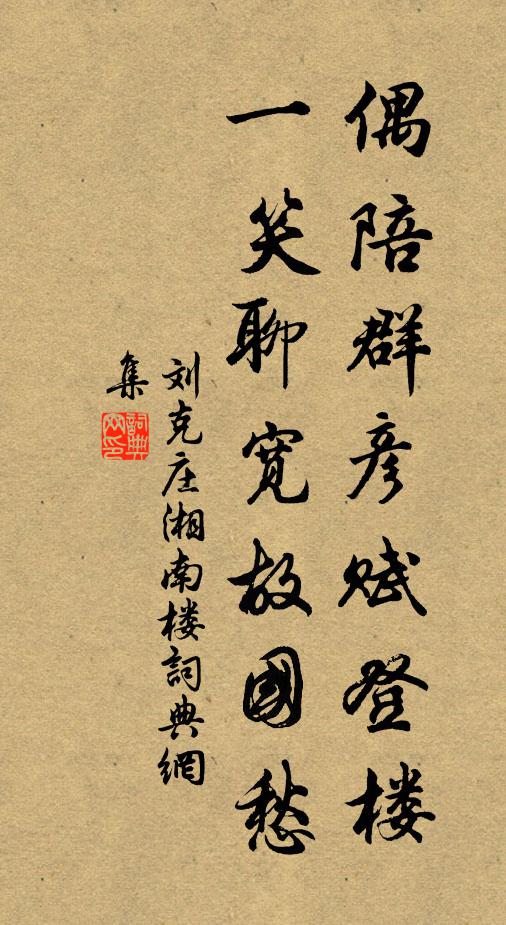 偶陪群彦赋登楼
一笑聊宽故國愁
刘克庄湘南楼詞典網
集
詞典
网印